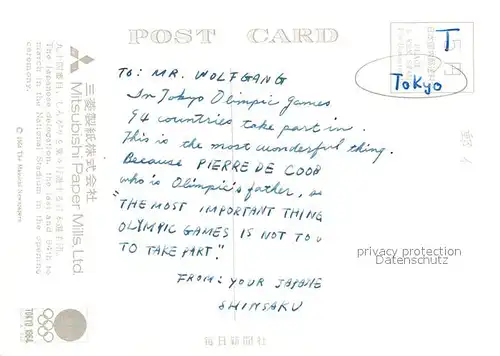 POST CARD
T
5円
Tokyo
TO: MR. WOLFGANG
In Tokyo Olimpic Games
94 countries take part in.
This is the most wonderful thing.
Because PIERRE DE COUB
who is Olimpic's father, as
"THE MOST IMPORTANT THING
OLYMPIC GAMES IS NOT TO
TO TAKE PART."
FROM: YOUR JAPANE
SHINSAKU
privacy protection
Datenschutz
毎日新聞社
三菱製紙株式会社
Mitsubishi Paper Mills, Ltd.
The Japanese delegation, the last and 94th to
march in the National Stadium in the opening
ceremony.
© 1964 The Mainichi Newspapers
TOKYO 1964